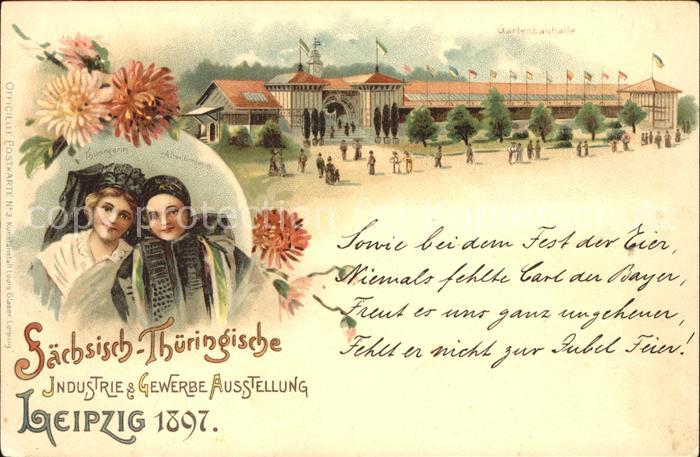 Gartenbauhalle
OFFICIELLE POSTKARTE No 3. Kunstanstalt Louis Glaser, Leipzig
Thüringerin
Sowie bei dem Fest der Eier,
Niemals fehlte Carl der Bayer,
Freut es uns ganz ungeheuer,
Fehlt er nicht zur Jubel Feier!
Sächsisch-Thüringische
INDUSTRIE & GEWERBE AUSSTELLUNG
LEIPZIG 1897.
copyright protection